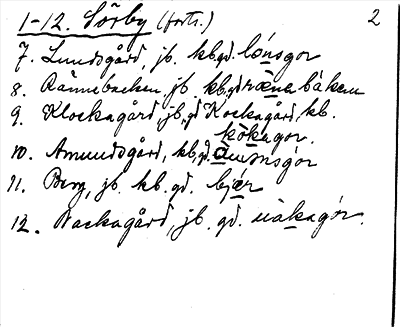 1-12. Sörby (forts.) 2
7. Lundsgård, jb. kb.gd. lónsgor
8. Rännebacken, jb, kb,gd rænebàken
9. Klockagård, jb, gd Kockagård, kb.
kòkagor.
10. Amundsgård, kb,gd. àmsnsgór
11. Berg, jb. kb. gd. bjér
12. Nackagård, jb. gd. nàkagór.